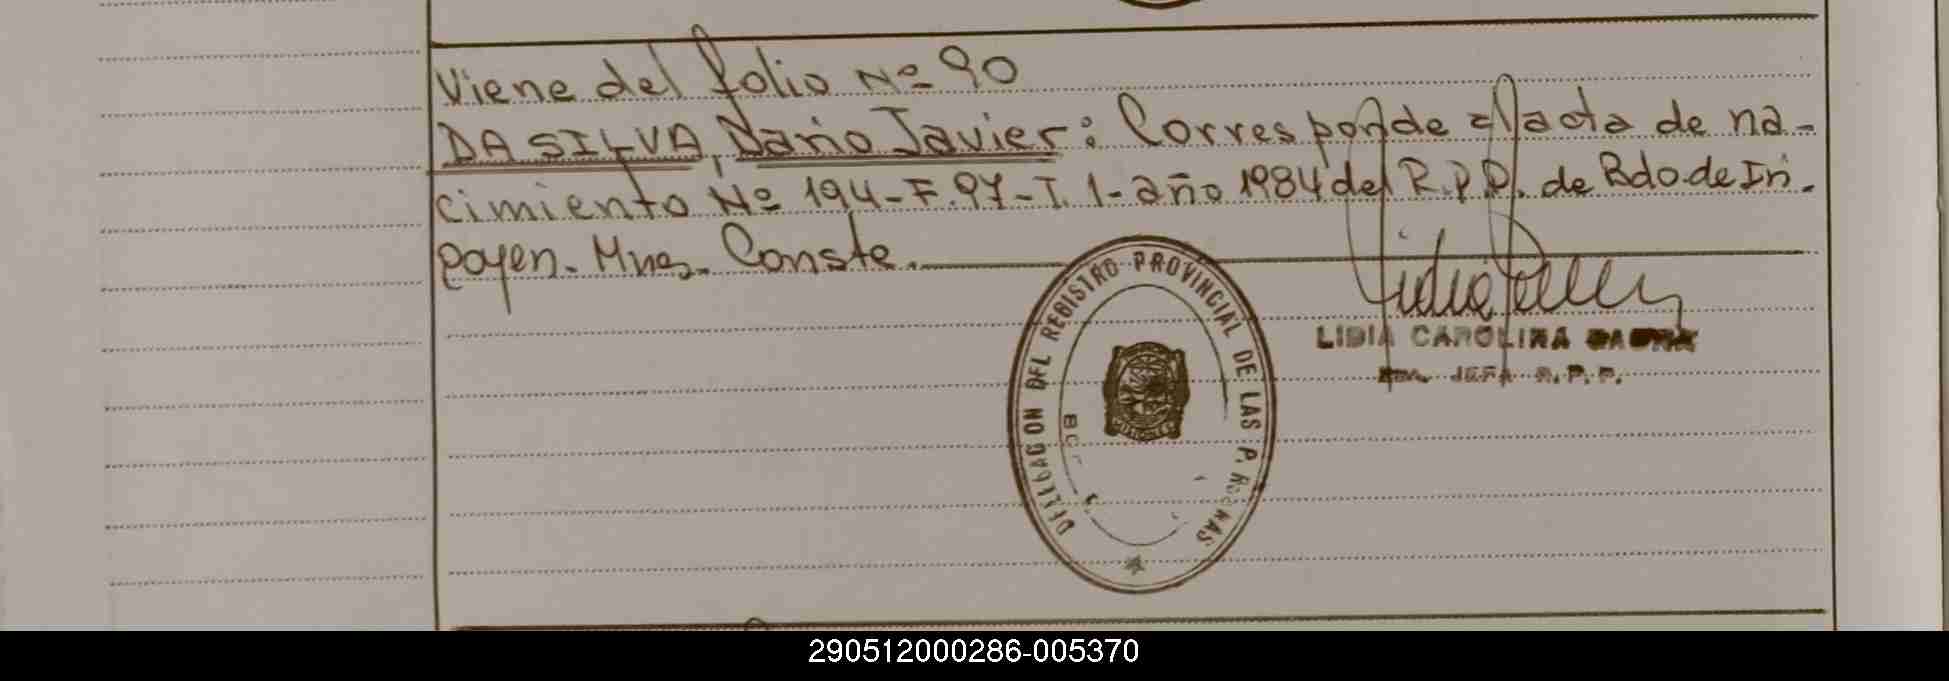 Viene del folio Nº 90
DA SILVA, Dario Javier: Corresponde al acta de na-
cimiento Nº 194-F.97-T.1-año 1984 del R.P.P. de Bdo de Iri-
goyen. Mnes. Conste.
DELEGACION DEL REGISTRO PROVINCIAL DE LAS P
LIDIA CAROLINA
JEFA R.P.P.
290512000286-005370